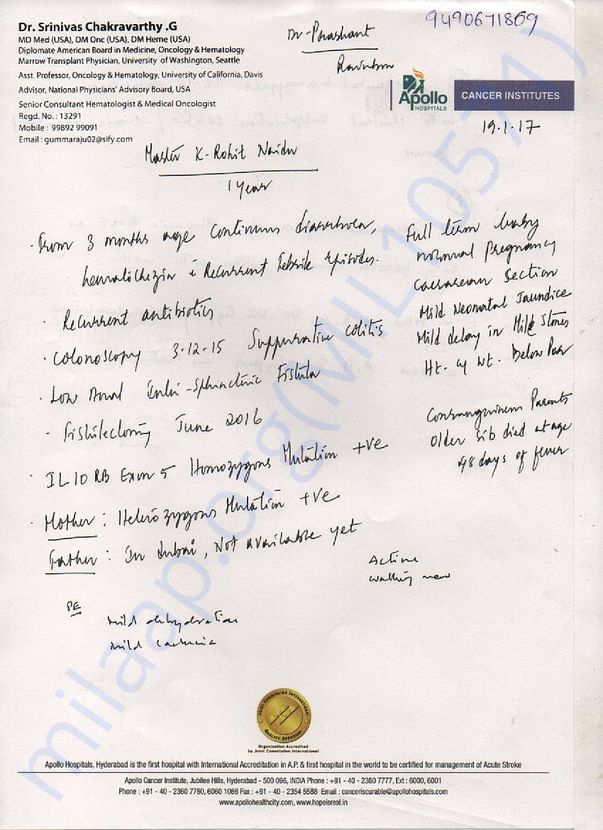 Dr. Srinivas Chakravarthy .G
MD Med (USA), DM Onc (USA), DM Heme (USA)
Diplomate American Board in Medicine, Oncology & Hematology
Marrow Transplant Physician, University of Washington, Seattle
Asst. Professor, Oncology & Hematology, University of California, Davis
Advisor, National Physicians' Advisory Board, USA
Senior Consultant Hematologist & Medical Oncologist
Regd. No. : 13291
Mobile : 99892 99091
Email : gummaraju02@sify.com
Dr. Prashant
Rainbow
9490671869
Apollo
HOSPITALS
CANCER INSTITUTES
19.1.17
Master K. Rohit Naidu
1 Year
· From 3 months age continuous diarrhoea,
hematichezia c Recurrent Febrile Episodes.
· Recurrent antibiotics
· Colonoscopy 3.12.15 Suppurative colitis
· Low Anal Inter-Sphincteric Fistula
· Fistulectomy June 2016
· IL10 RB Exon 5 Homozygous Mutation +ve
· Mother : Heterozygous Mutation +ve
Father : In Dubai, Not available yet
Full term baby
normal pregnancy
caesarean section
Mild Neonatal Jaundice
Mild delay in Mile Stones
Ht. & Wt. Below Par
Consanguineous Parents
Older sib died at age
48 days of fever
Active
walking now
PE
mild dehydration
mild
milaap.org(MIL10571)
Organization Accredited
by Joint Commission International
Apollo Hospitals, Hyderabad is the first hospital with International Accreditation in A.P. & first hospital in the world to be certified for management of Acute Stroke
Apollo Cancer Institute, Jubilee Hills, Hyderabad - 500 096, INDIA Phone : +91 - 40 - 2360 7777, Ext : 6000, 6001
Phone : +91 - 40 - 2360 7780, 6060 1066 Fax : +91 - 40 - 2354 5588 Email : canceriscurable@apollohospitals.com
www.apollohealthcity.com, www.hopeisreal.in